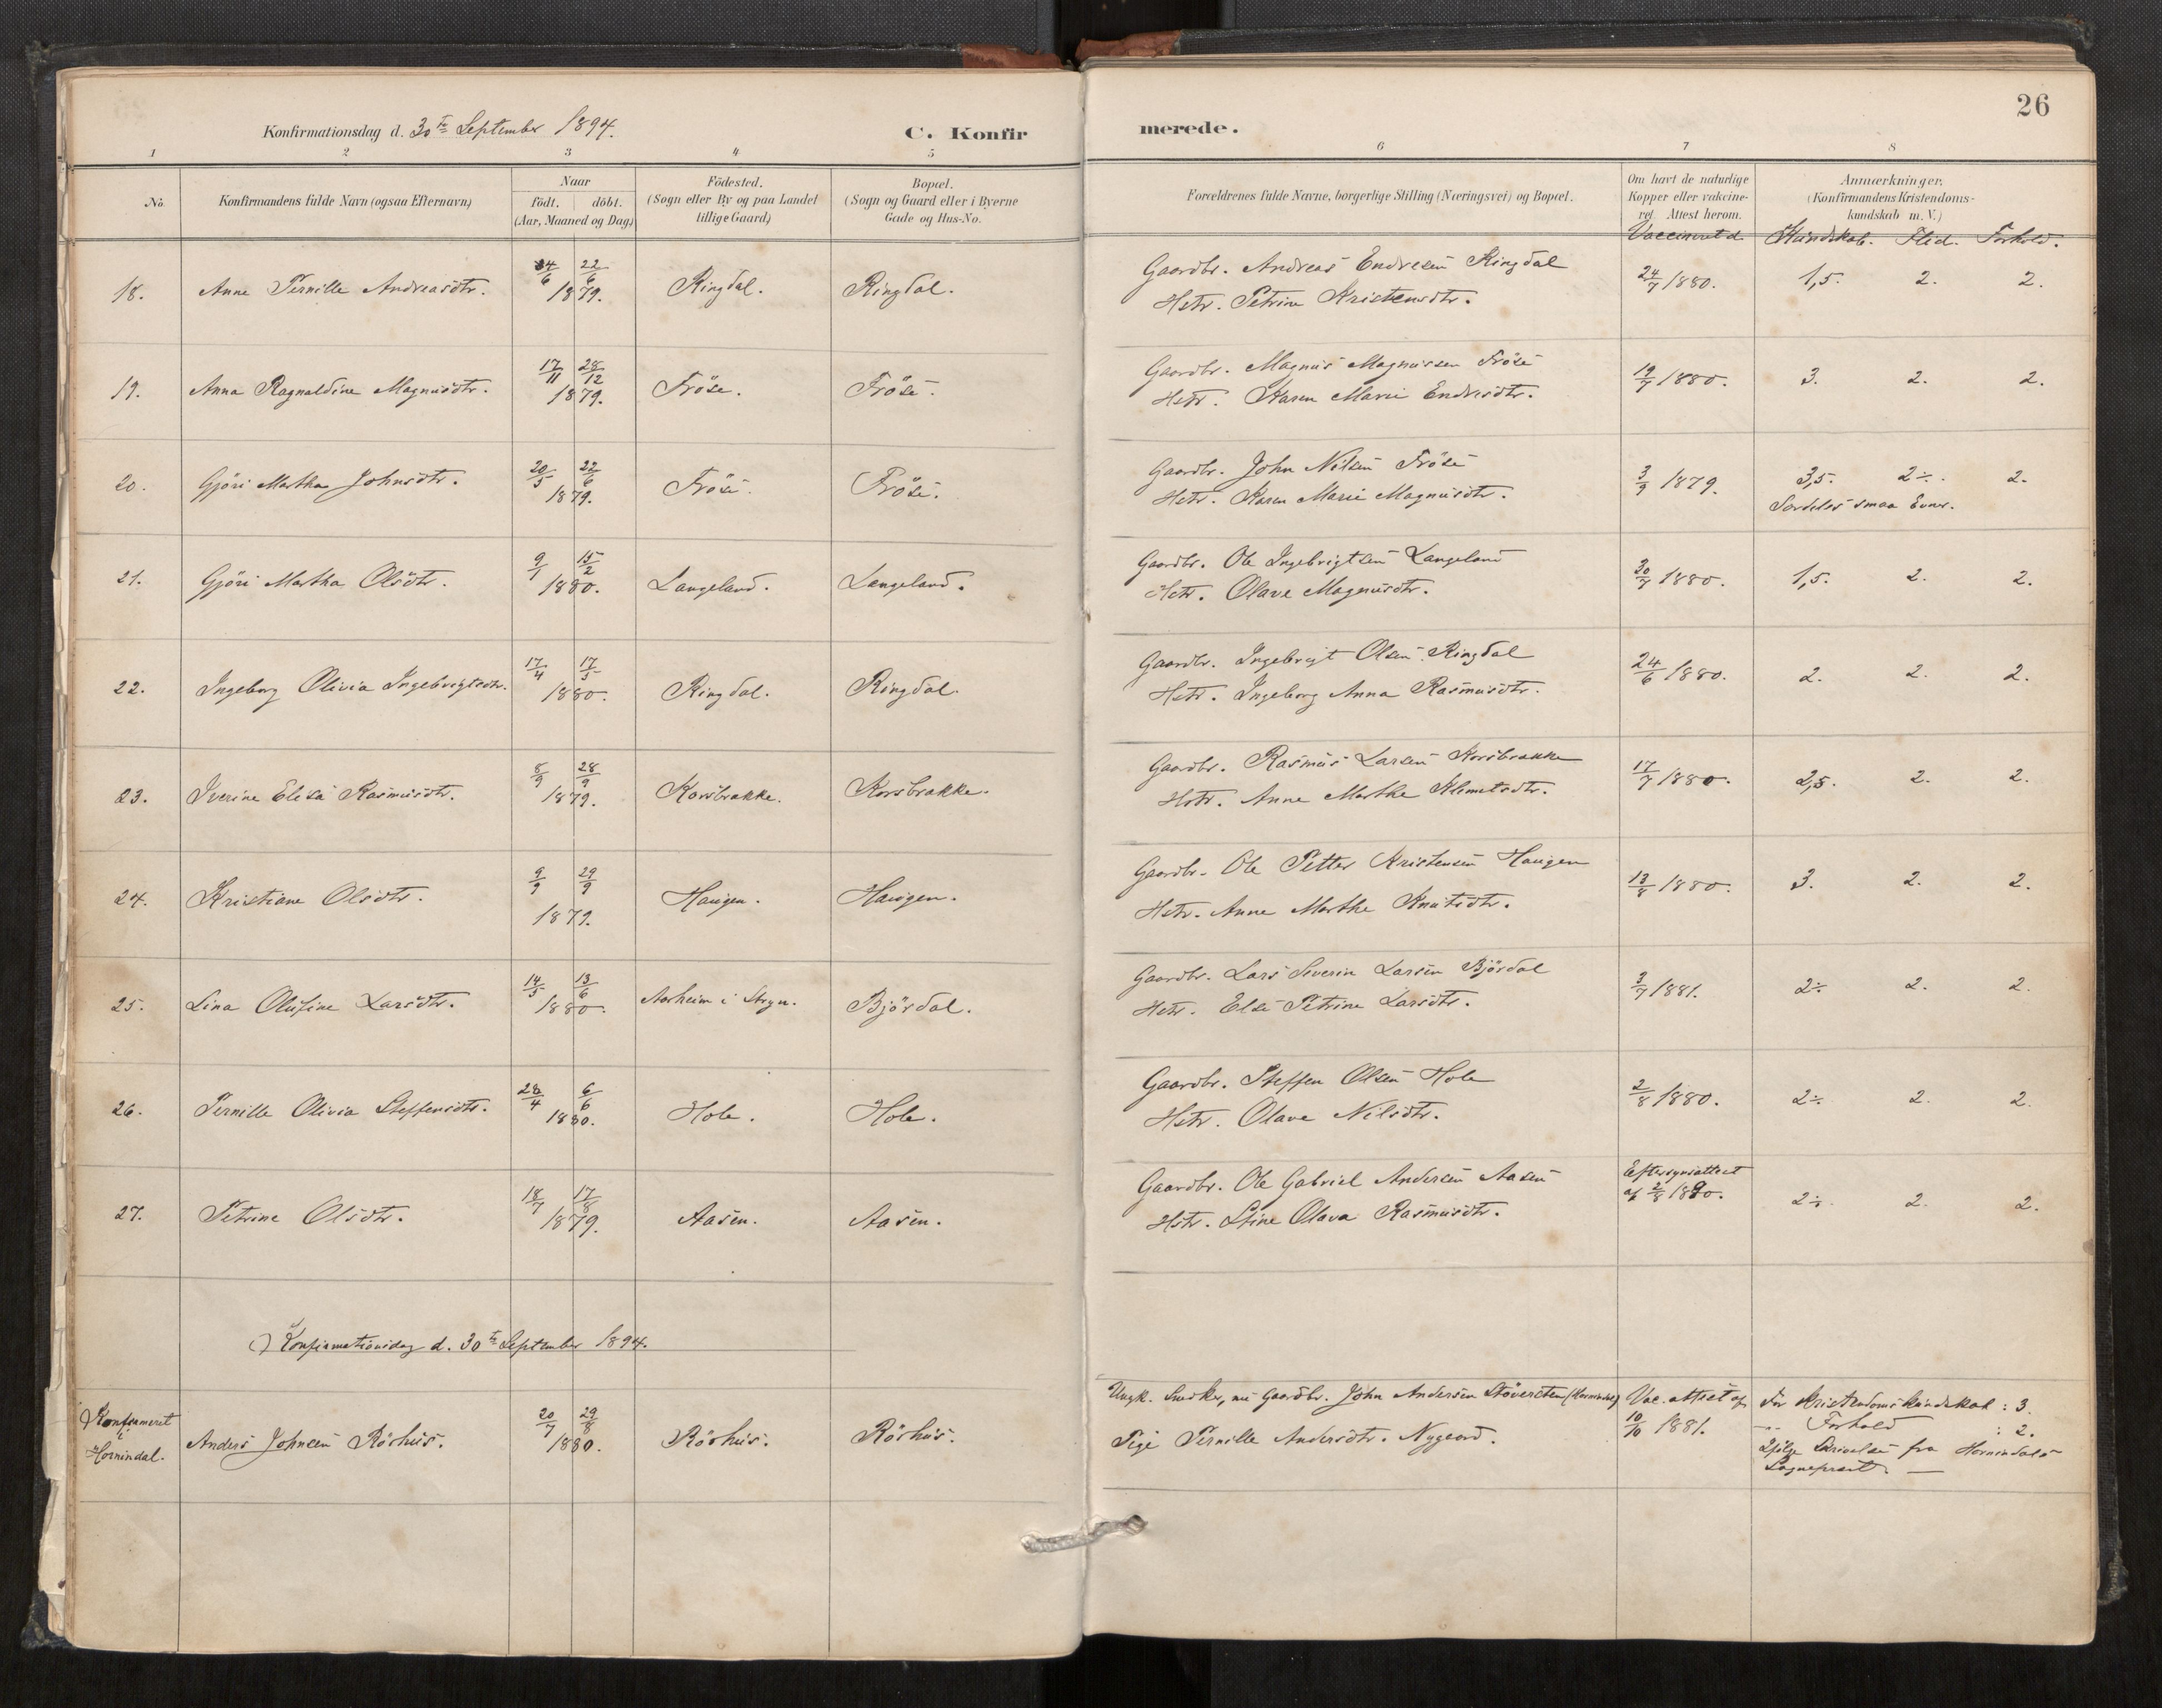 26
Konfirmationsdag d. 30te September 1894.
C. Konfirmerede.
1 2 3 4 5 6 7 8
No. Konfirmandens fulde Navn (ogsaa Efternavn) Naar födt. döbt. (Aar, Maaned og Dag) Födested. (Sogn eller By og paa Landet tillige Gaard) Bopæl. (Sogn og Gaard eller i Byerne Gade og Hus-No. Forældrenes fulde Navne, borgerlige Stilling (Næringsvei) og Bopæl. Om havt de naturlige Kopper eller vakcineret. Attest herom. Anmærkninger. (Konfirmandens Kristendomskundskab m. V.)
Vaccineret d. Kundskab. Flid. Forhold.
18. Anne Pernille Andreasdtr. 4/6 22/6 1879. Ringdal. Ringdal. Gaardbr. Andreas Endresen Ringdal 24/7 1880. 1,5. 2. 2.
Hstr. Petrine Kristensdtr.
19. Anna Ragnaldine Magnusdtr. 17/11 28/12 1879. Fröse. Fröse. Gaardbr. Magnus Magnussen Fröse 19/7 1880. 3. 2. 2.
Hstr. Karen Marie Endresdtr.
20. Gjöri Martha Johnsdtr. 20/5 22/6 1879. Fröse. Fröse. Gaardbr. John Nilsen Fröse 3/9 1879. 3,5. 2÷. 2.
Hstr. Karen Marie Magnusdtr. Særdeles smaa Evner.
21. Gjöri Martha Olsdtr. 9/1 15/2 1880. Langeland. Langeland. Gaardbr. Ole Ingebrigtsen Langeland 30/7 1880. 1,5. 2. 2.
Hstr. Olave Magnusdtr.
22. Ingeborg Olivia Ingebrigtsdtr. 17/4 17/5 1880. Ringdal. Ringdal. Gaardbr. Ingebrigt Olsen Ringdal 24/6 1880. 2. 2. 2.
Hstr. Ingeborg Anna Rasmusdtr.
23. Iverine Elisa Rasmusdtr. 8/9 28/9 1879. Korsbrakke. Korsbrakke. Gaardbr. Rasmus Larsen Korsbrakke 17/7 1880. 2,5. 2. 2.
Hstr. Anne Marthe Klimetsdtr.
24. Kristiane Olsdtr. 9/9 29/9 1879. Haugen. Haugen. Gaardbr. Ole Petter Kristensen Haugen 13/8 1880. 3. 2. 2.
Hstr. Anne Marthe Knutsdtr.
25. Lina Olufine Larsdtr. 14/5 13/6 1880. Aarheim i Stryn. Björdal. Gaardbr. Lars Severin Larsen Björdal 3/7 1881. 2÷. 2. 2.
Hstr. Else Petrine Larsdtr.
26. Pernille Olivia Steffensdtr. 28/4 6/6 1880. Hole. Hole. Gaardbr. Steffen Olsen Hole 2/8 1880. 2÷. 2. 2.
Hstr. Olave Nilsdtr.
27. Petrine Olsdtr. 18/7 17/8 1879. Aasen. Aasen. Gaardbr. Ole Gabriel Andersen Aasen Eftersynsattest af 2/8 1880. 2÷. 2. 2.
Hstr. Stine Olava Rasmusdtr.
Konfirmationsdag d. 30te September 1894.
Konfirmeret i Hornindal. Anders Johnsen Rörhus. 20/7 29/8 1880. Rörhus. Rörhus. Ungk. Snedker, nu Gaardbr. John Andersen Stöversten (Hornindal) Vac. attest af 10/10 1881. For Kristendomskundskab : 3.
Pige Pernille Andersdtr. Nygaard. -"- Forhold : 2.
Ifölge Skrivelse fra Hornindals Sogneprest. —